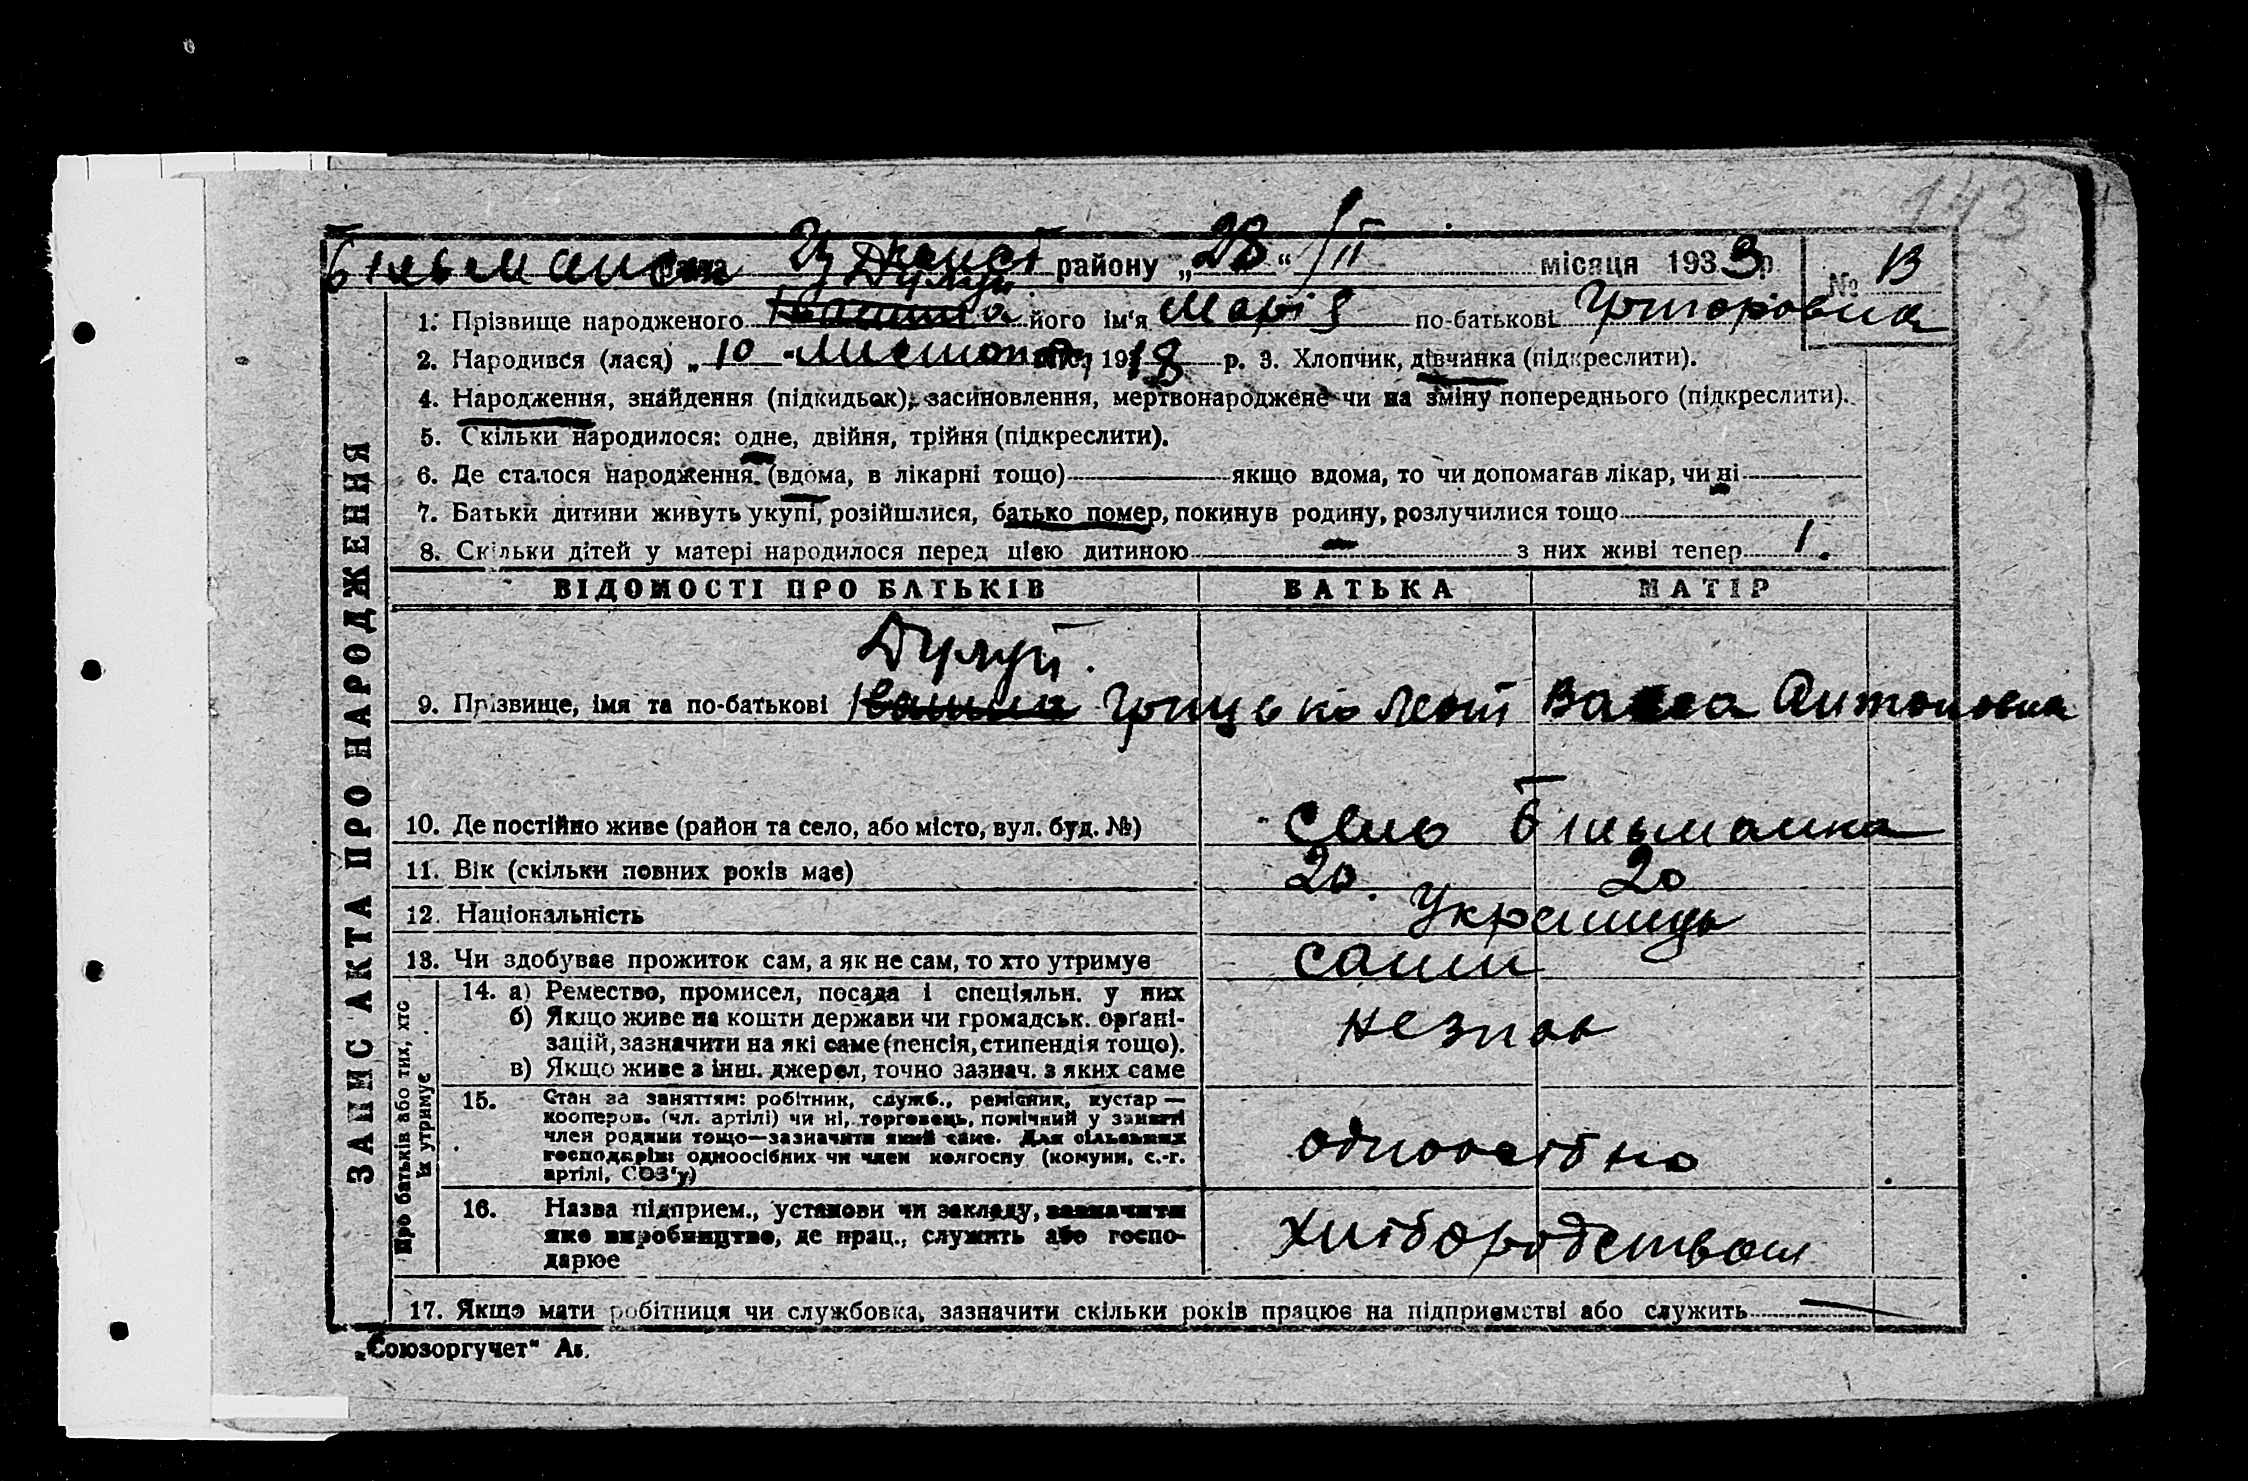 143
Більманка району „28“ / II місяця 1933 р. № 13
Дулуй
1. Прізвище народженого його ім'я Марія по-батькові Григоровна
2. Народився (лася) „10“ Листопад 1918 р. 3. Хлопчик, дівчинка (підкреслити).
4. Народження, знайдення (підкидьок), засиновлення, мертвонароджене чи на зміну попереднього (підкреслити).
5. Скільки народилося: одне, двійня, трійня (підкреслити).
6. Де сталося народження (вдома, в лікарні тощо) якщо вдома, то чи допомагав лікар, чи ні
7. Батьки дитини живуть укупі, розійшлися, батько помер, покинув родину, розлучилися тощо
8. Скільки дітей у матері народилося перед цією дитиною — з них живі тепер 1.
ВІДОМОСТІ ПРО БАТЬКІВ БАТЬКА МАТІР
Дулуй.
9. Прізвище, імя та по-батькові Іванина Грицько Васса Антоновна
10. Де постійно живе (район та село, або місто, вул. буд. №) село Більманка
11. Вік (скільки повних років має) 20. 20
12. Національність Украинць
13. Чи здобуває прожиток сам, а як не сам, то хто утримує сами
14. а) Ремество, промисел, посада і спеціяльн. у них
б) Якщо живе на кошти держави чи громадськ. органі-
зацій, зазначити на які саме (пенсія, стипендія тощо).
в) Якщо живе з інш. джерел, точно зазнач. з яких саме
15. Стан за заняттям: робітник, служб., ремісник, кустар —
кооперов. (чл. артілі) чи ні, торговець, помічний у занятті
член родини тощо—зазначити який саме. Для сільських
господарів: одноосібник чи член колгоспу (комуни, с.-г.
артілі, СОЗ'у)
одноосібно
16. Назва підприєм., установи чи закладу, зазначити
яке виробництво, де прац., служить або госпо-
дарює
хліборобством
17. Якщо мати робітниця чи службовка, зазначити скільки років працює на підприємстві або служить
ЗАПИС АКТА ПРО НАРОДЖЕННЯ
Про батьків або тих, хто
їх утримує
„Союзоргучет“